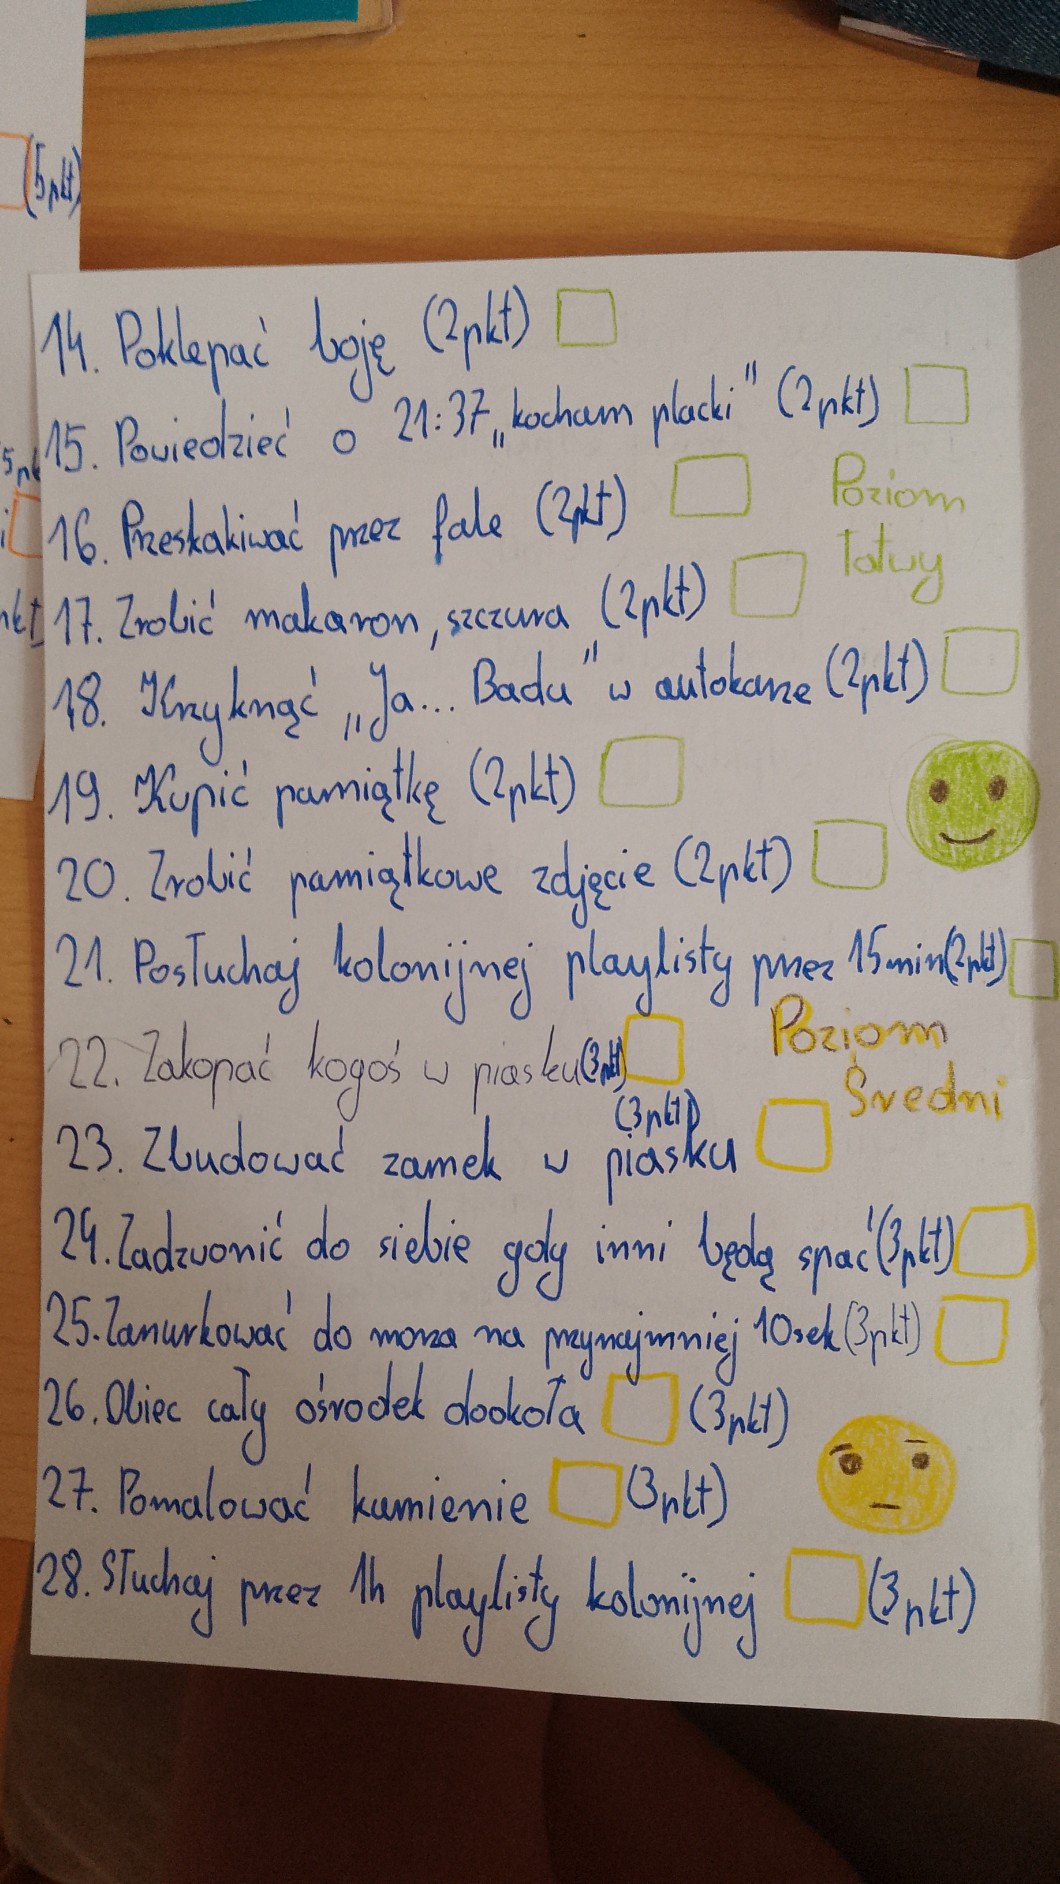 (5pkt)
14. Poklepać boję (2pkt)
15. Powiedzieć o 21:37 „kocham placki" (2pkt)
16. Przeskakiwać przez fale (2pkt)
Poziom
łatwy
17. Zrobić makaron, szczura (2pkt)
18. Krzyknąć „Ja... Badu" w autokarze (2pkt)
19. Kupić pamiątkę (2pkt)
20. Zrobić pamiątkowe zdjęcie (2pkt)
21. Posłuchaj kolonijnej playlisty przez 15min (2pkt)
22. Zakopać kogoś w piasku (3pkt)
Poziom
Średni
23. Zbudować zamek w piasku (3pkt)
24. Zadzwonić do siebie gdy inni będą spać (3pkt)
25. Zanurkować do morza na przynajmniej 10sek (3pkt)
26. Obiec cały ośrodek dookoła (3pkt)
27. Pomalować kamienie (3pkt)
28. Słuchaj przez 1h playlisty kolonijnej (3pkt)